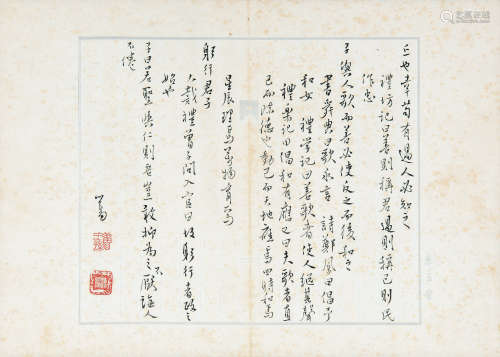 丘也幸苟有過人必知之
禮坊記曰善則稱君過則稱己則民
作忠
子與人歌而善必使反之而後和之
書舜典曰歌永言 詩鄭風曰倡予
和女 禮學記曰善歌者使人繼其聲
禮樂記曰倡和有應又曰夫歌者直
己而陳德也動己而天地應焉四時和焉
星辰理焉萬物育焉
躬行君子
大戴禮曾子問入官曰故躬行者政之
始也
子曰若聖與仁則吾豈敢抑為之不厭誨人
不倦